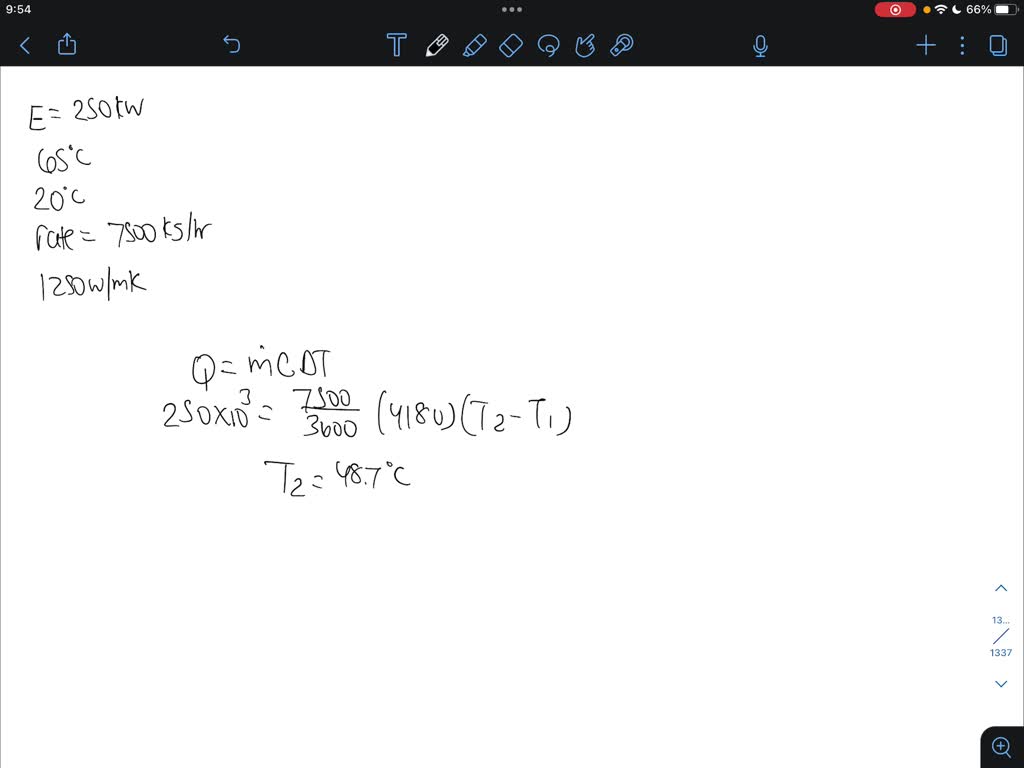 9:54
66%
T
E = 250kW
65°C
20°C
rate = 7500 kg/hr
1250w/mK
Q = ṁCΔT
250×10³ = 7500/3600 (4180)(T₂ - T₁)
T₂ = 48.7°C
13...
1337